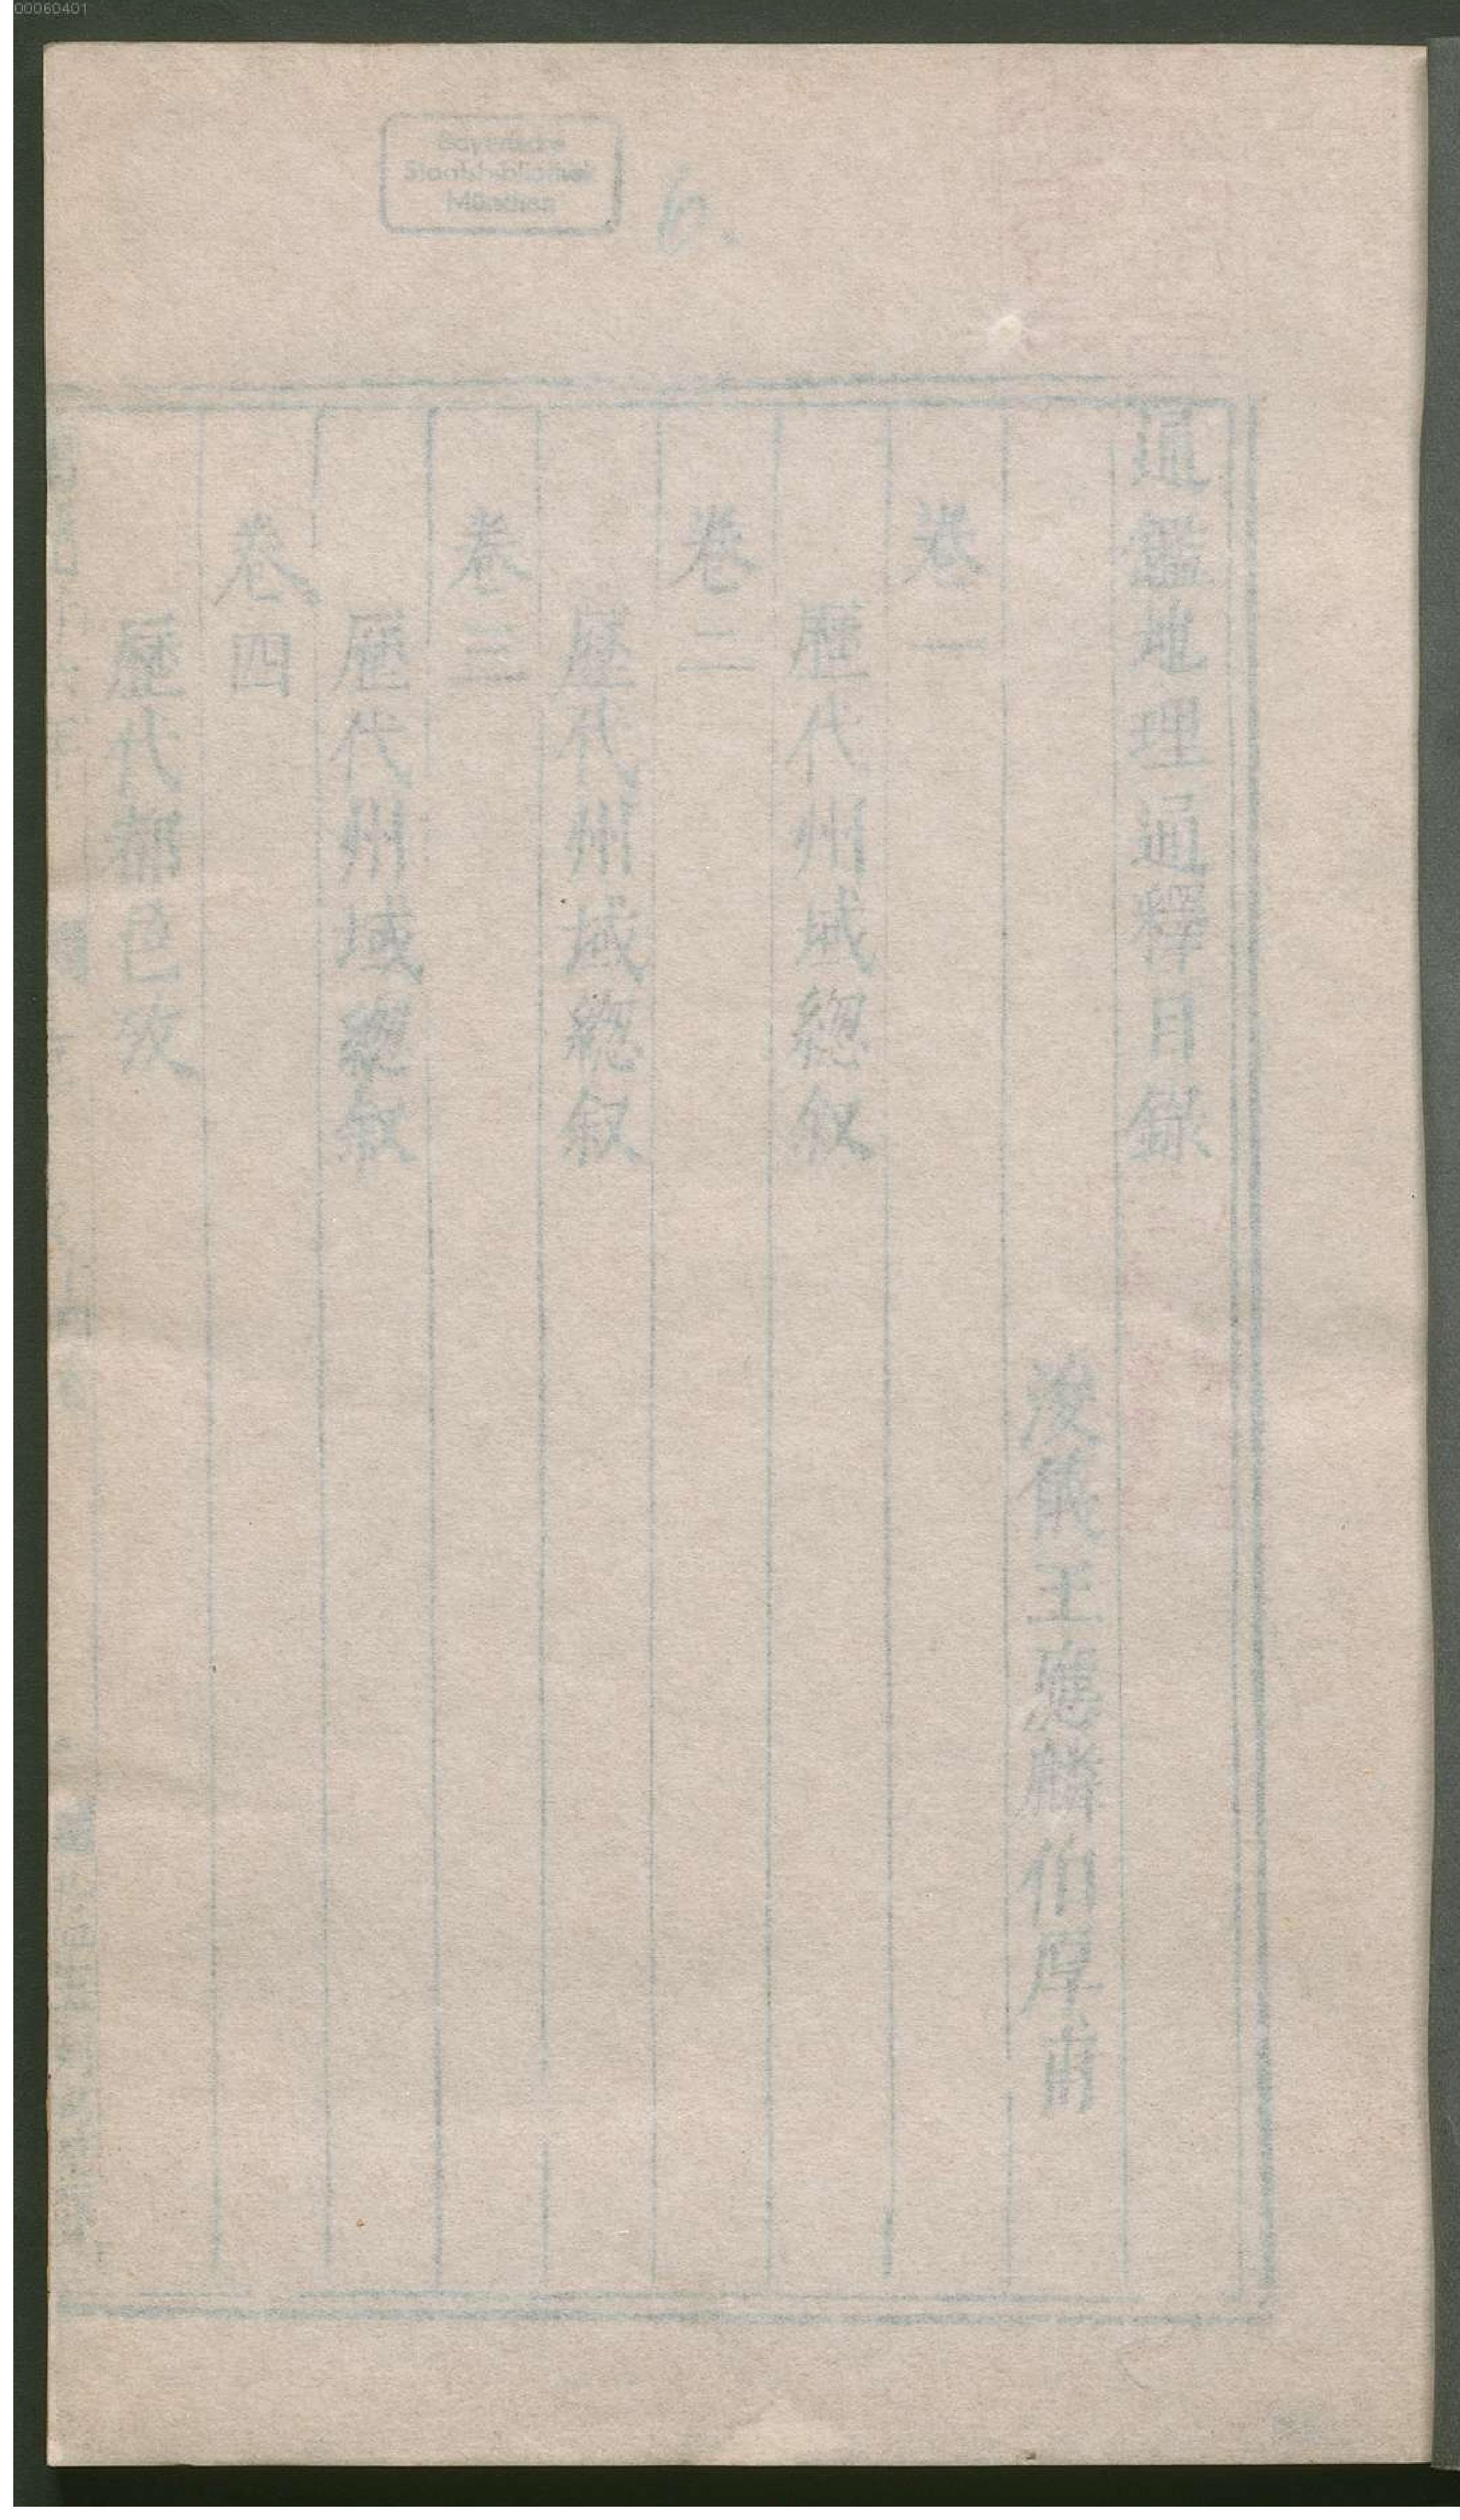 00060401
Bayerische
Staatsbibliothek
München
6.
通鑑地理通釋目錄
浚儀王應麟伯厚甫
卷一
歷代州域總叙
卷二
歷代州域總叙
卷三
歷代州域總叙
卷四
歷代都邑攷